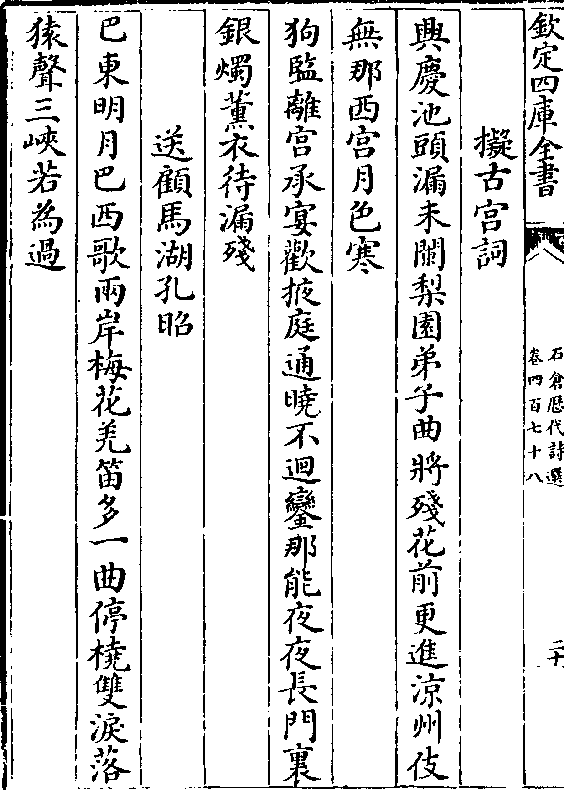 欽定四庫全書
石倉歷代詩選
卷四百七十八
二十
擬古宮詞
興慶池頭漏未闌梨園弟子曲將殘花前更進涼州伎
無那西宮月色寒
狗監離宮承宴歡掖庭通曉不迴鑾那能夜夜長門裏
銀燭薰衣待漏殘
送顧馬湖孔昭
巴東明月巴西歌兩岸梅花羌笛多一曲停橈雙淚落
猿聲三峽若為過